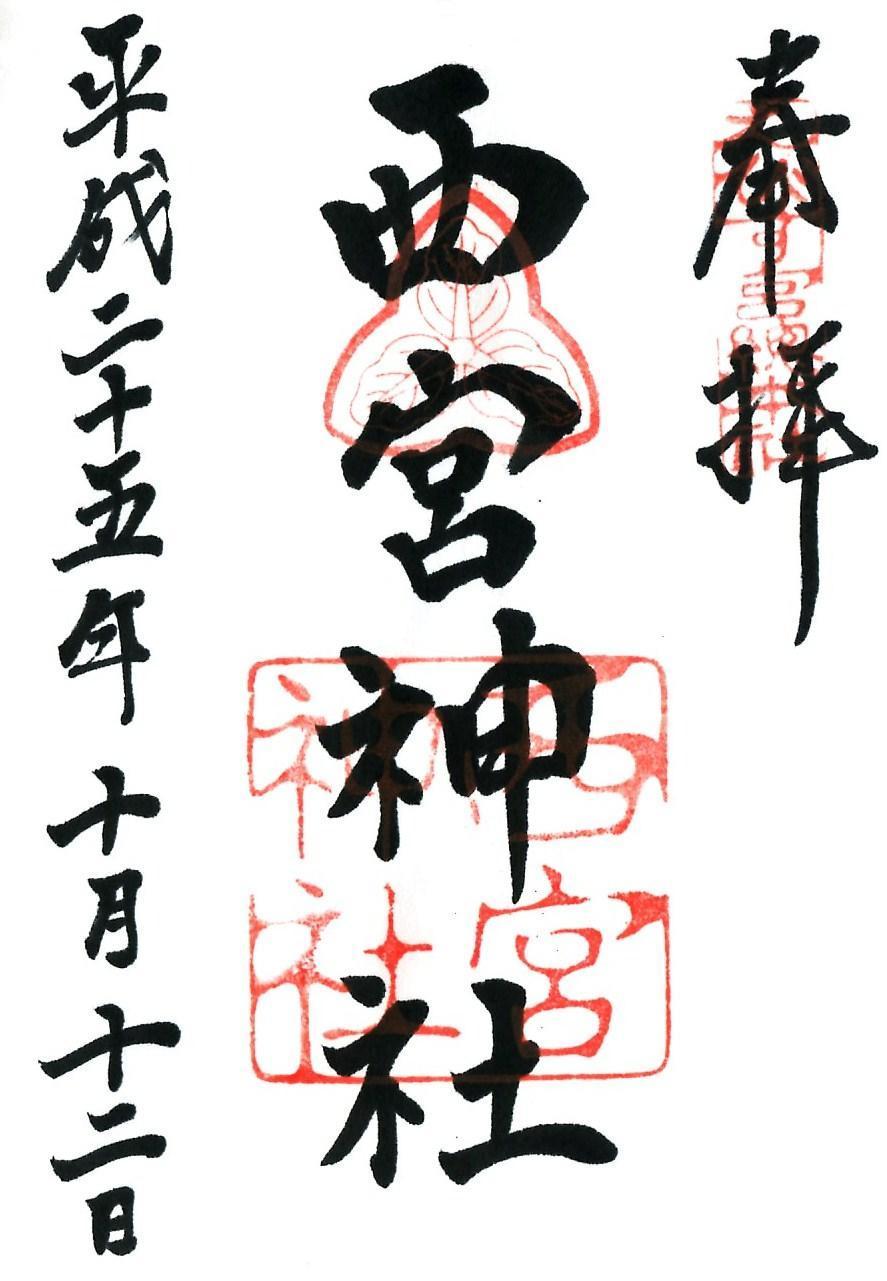 奉拝
西宮神社
西宮神社
平成二十五年十月十二日